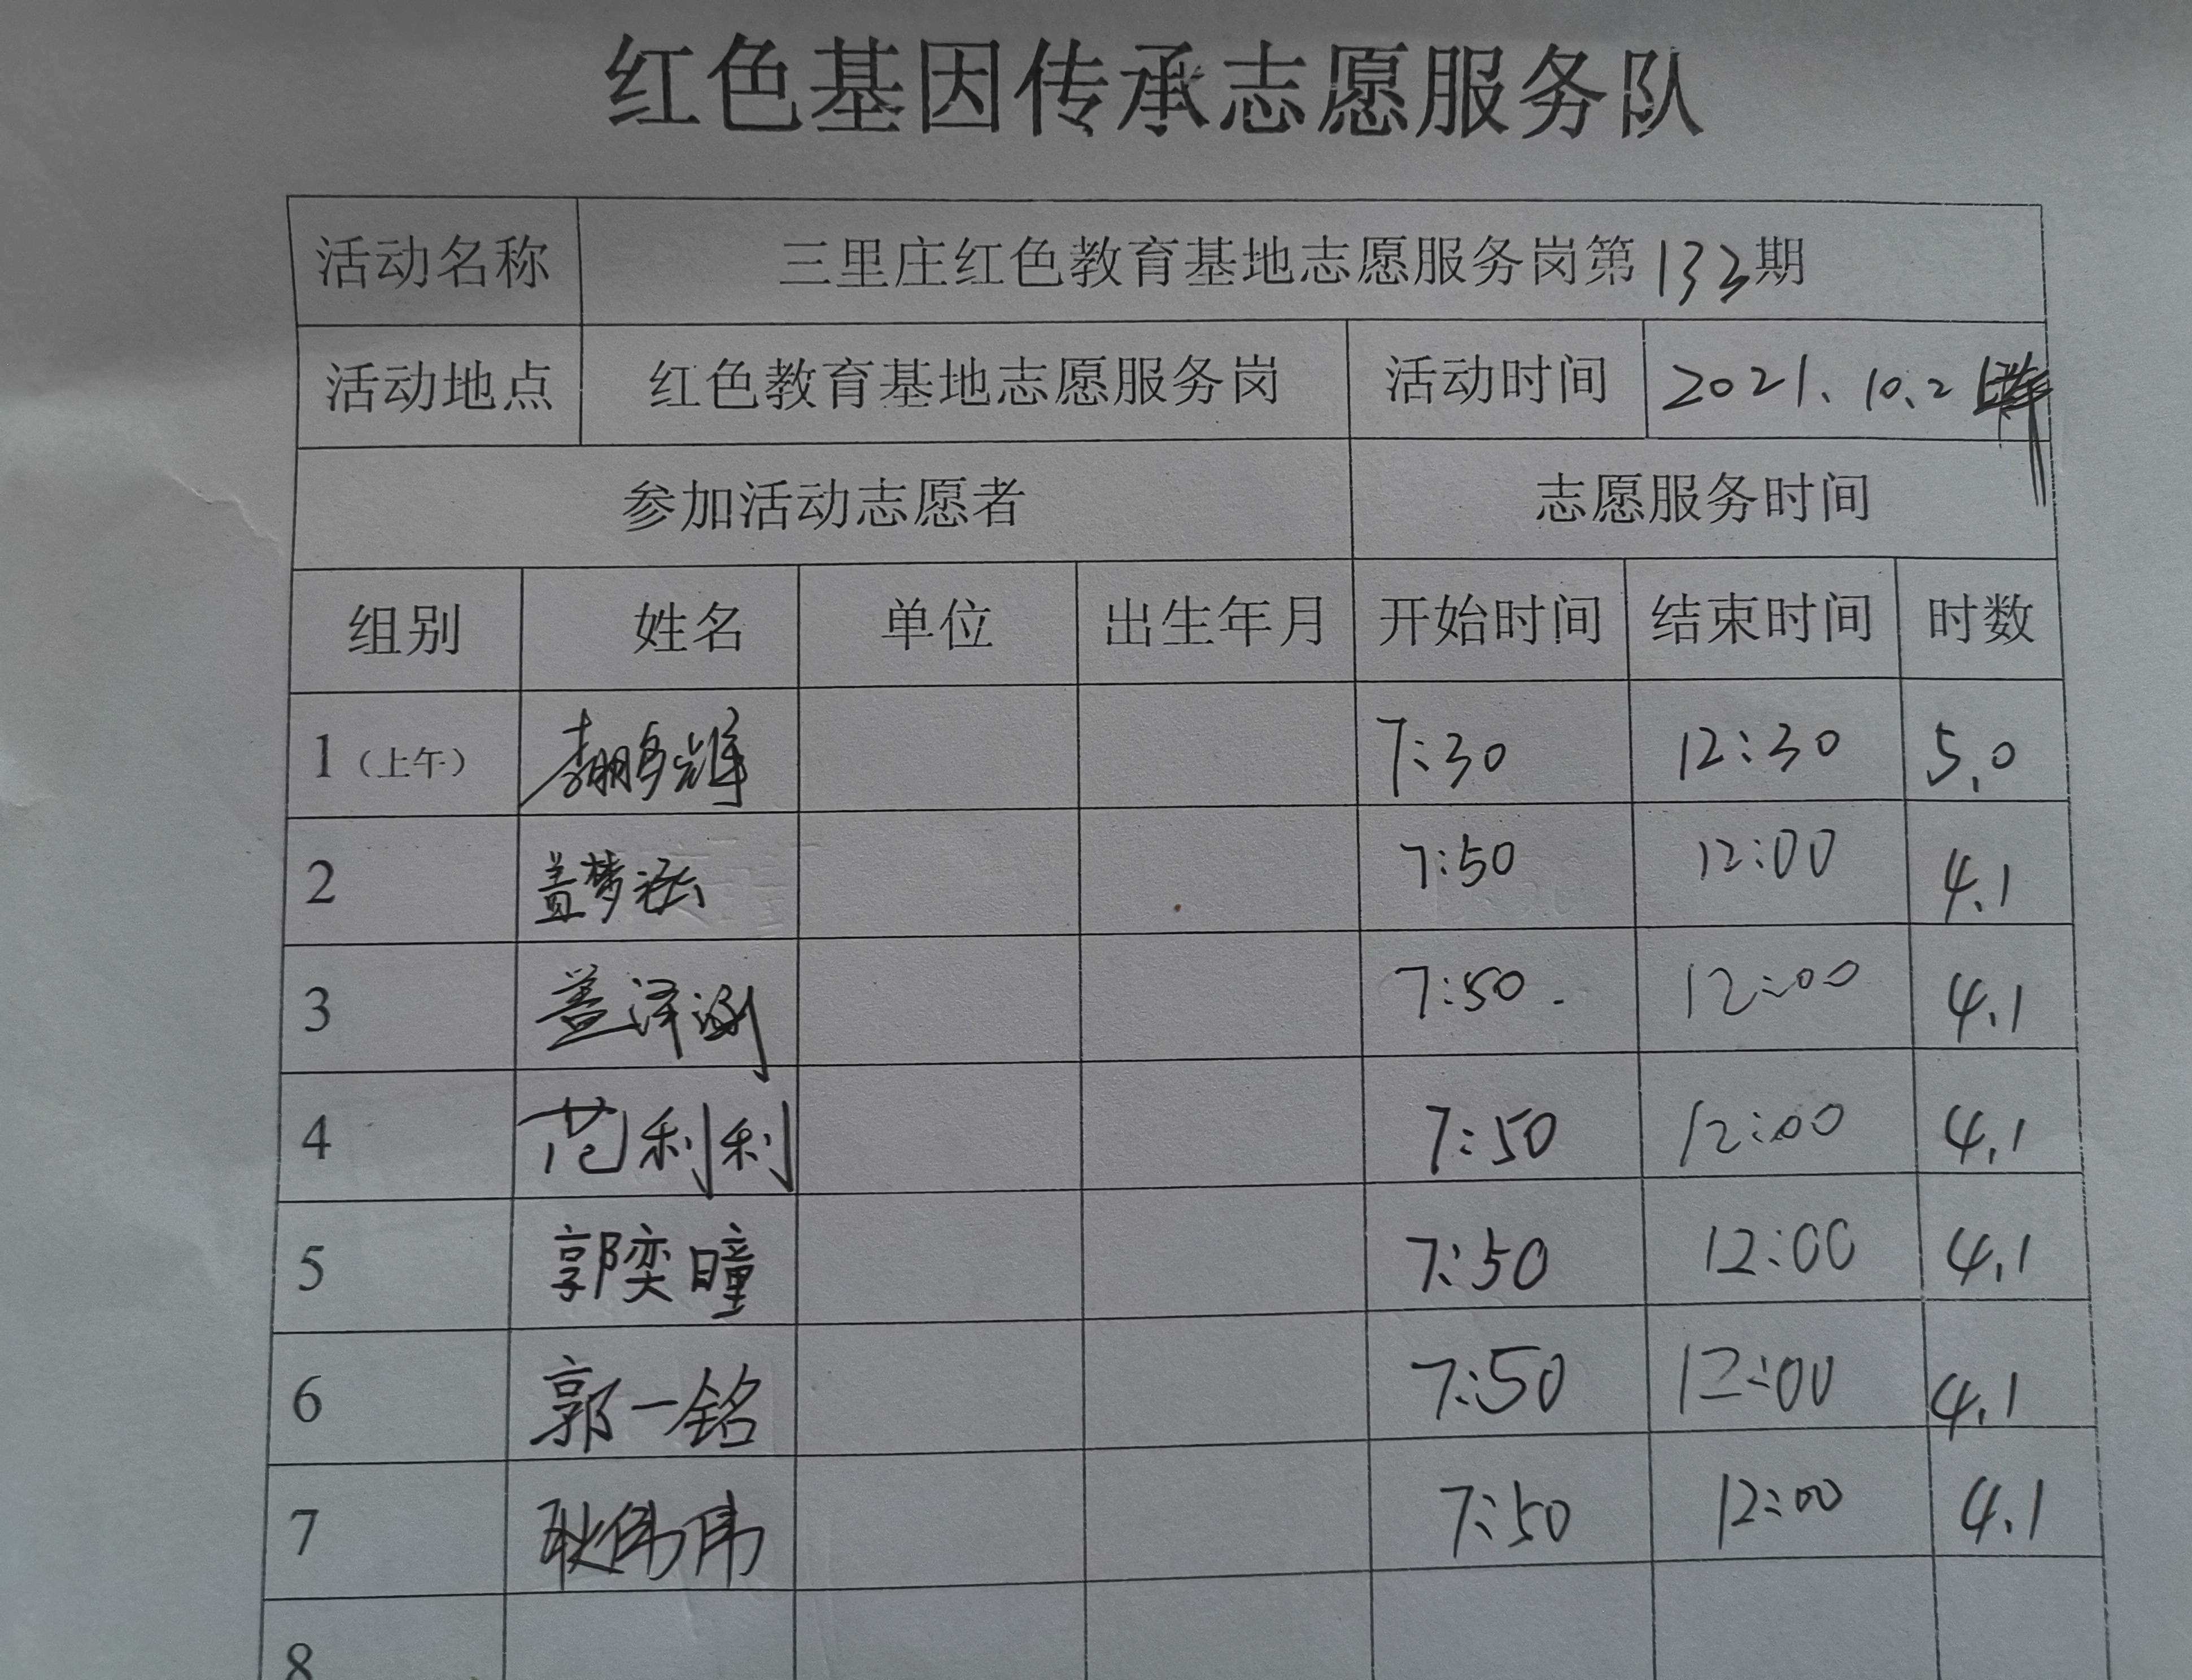 红色基因传承志愿服务队
活动名称 三里庄红色教育基地志愿服务岗第133期
活动地点 红色教育基地志愿服务岗 活动时间 2021.10.2
参加活动志愿者 志愿服务时间
组别 姓名 单位 出生年月 开始时间 结束时间 时数
1（上午） 李鹏辉 7:30 12:30 5.0
2 盖梦涵 7:50 12:00 4.1
3 盖泽 7:50 12:00 4.1
4 范利利 7:50 12:00 4.1
5 郭奕曈 7:50 12:00 4.1
6 郭一铭 7:50 12:00 4.1
7 耿伟伟 7:50 12:00 4.1
8